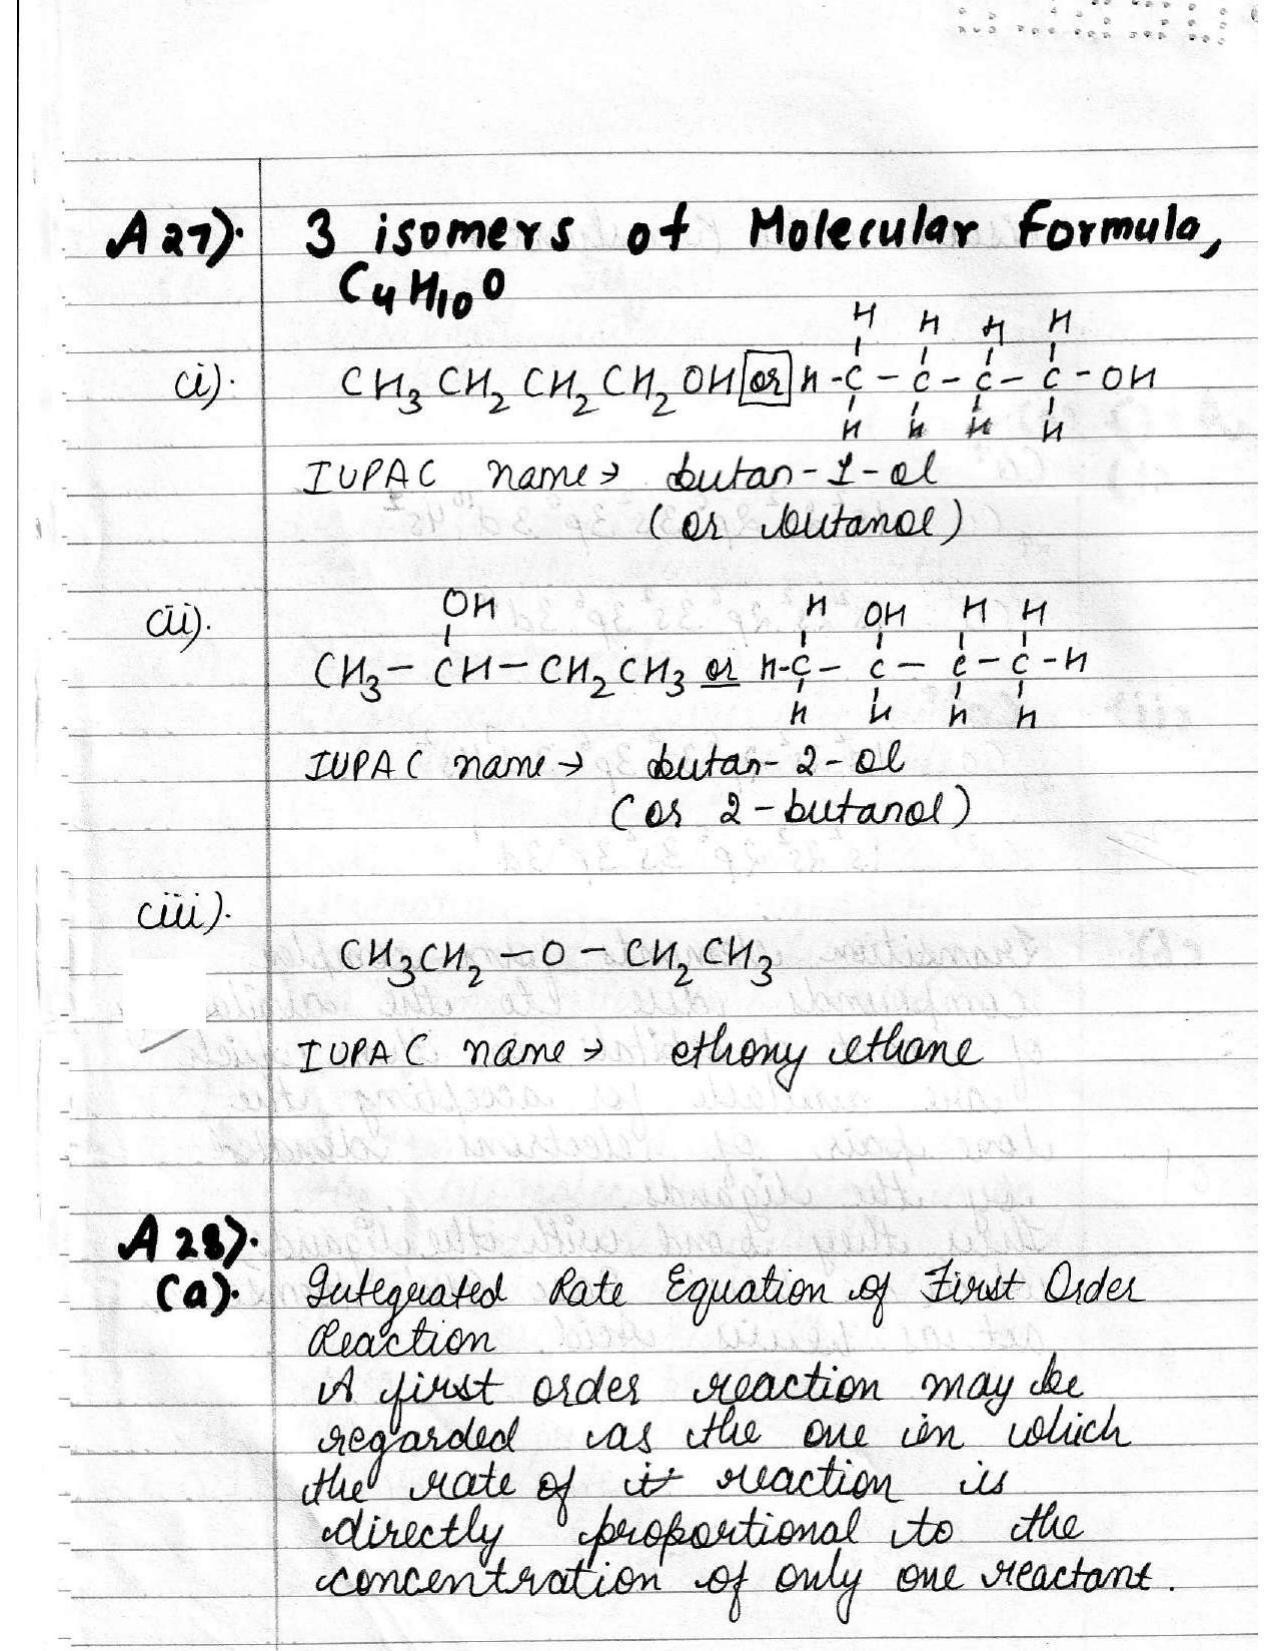 A 27). 3 isomers of Molecular Formula,
C₄H₁₀O
H H H H
(i). CH₃ CH₂ CH₂ CH₂ OH or H - C - C - C - C - OH
H H H H
IUPAC name → butan-1-ol
(or butanol)
OH H OH H H
(ii).
CH₃ - CH - CH₂ CH₃ or H-C - C - C - C - H
H H H H
IUPAC name → butan-2-ol
(or 2-butanol)
(iii).
CH₃CH₂ - O - CH₂ CH₃
IUPAC name → ethoxy ethane
A 28).
(a). Integrated Rate Equation of First Order
Reaction
A first order reaction may be
regarded as the one in which
the rate of it reaction is
directly proportional to the
concentration of only one reactant.